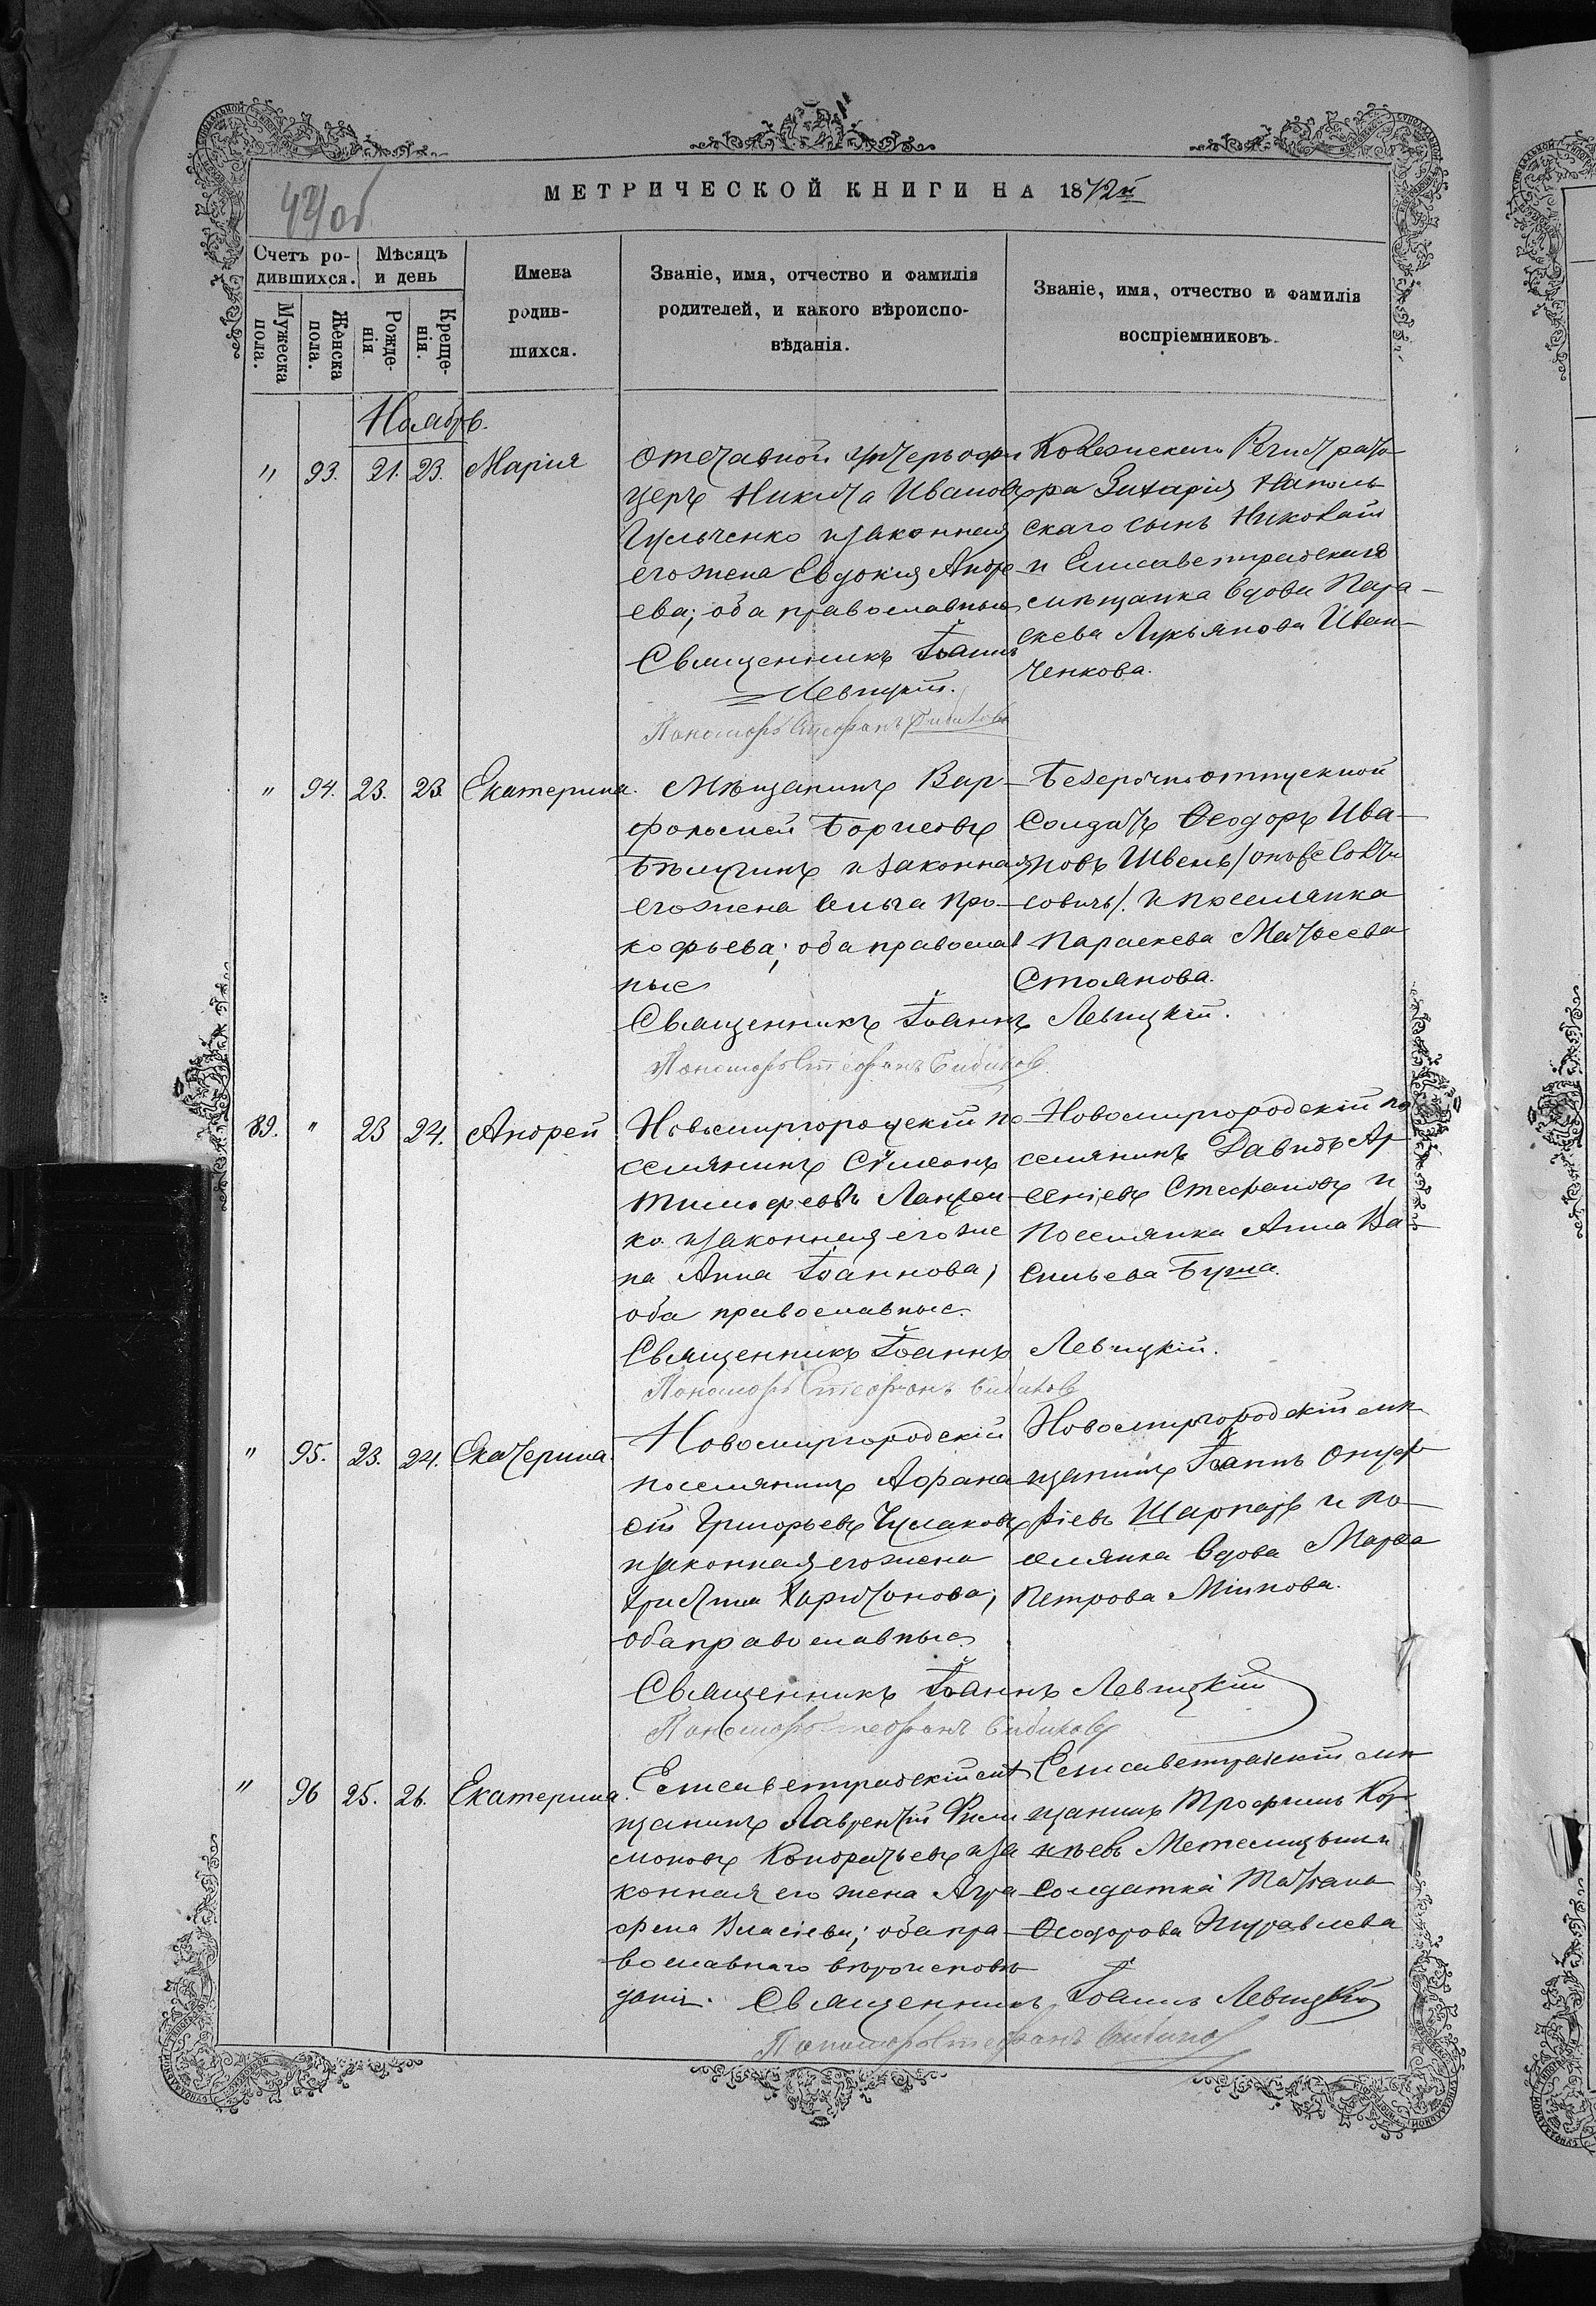 МЕТРИЧЕСКОЙ КНИГИ НА 1872й
Счетъ ро-
дившихся.
Мѣсяцъ
и день
Имена
родив-
шихся.
Званіе, имя, отчество и фамилія
родителей, и какого вѣроиспо-
вѣданія.
Званіе, имя, отчество и фамилія
воспріемниковъ.
Мужеска
пола.
Женска
пола.
Рожде-
нія
Креще-
нія.
Ноябрь.
" 93. 21. 23. Марія
Отставной унтеръ офи
церъ Никита Ивановъ
изаконная
его жена Евдокія Андре
ева; оба православные
Священникъ Іоаннъ
Левицкій.
Пономарь Стефанъ Бибиковъ
Регистрато-
ра Захарія
скаго сынъ Николай
и Елисаветградская
мѣщанка вдова Пара-
скева Лукьянова Иван-
ченкова.
" 94. 23. 23. Екатерина.
Мѣщанинъ Вар-
фоломей Борисовъ
изаконная
его жена Ольга Про-
кофьева; оба православ
ные
Священникъ Іоаннъ Левицкій.
Пономарь Стефанъ Бибиковъ
Безсрочноотпускной
Солдатъ Ѳеодоръ Ива-
новъ Швецъ
и поселянка
Параскева Матѳеева
Стоянова.
89. " 23 24. Андрей
Новомиргородскій по
селянинъ Сѵмеонъ
Тимофеевъ
ко изаконная его же
на Анна Іоаннова;
оба православные.
Священникъ Іоаннъ Левицкій.
Пономарь Стефанъ Бибиковъ
Новомиргородскій по
селянинъ Давидъ Ар
сеніевъ Стефановъ и
Поселянка Анна Ва-
сильева
" 95. 23. 24. Екатерина.
Новомиргородскій
поселянинъ Афана
сій Григорьевъ Чумаковъ
изаконная его жена
Христина Харитонова;
оба православные.
Священникъ Іоаннъ Левицкій
Пономарь Стефанъ Бибиковъ
Новомиргородскій мѣ
щанинъ Іоаннъ Онуф
ріевъ и по-
селянка вдова Марѳа
Петрова
" 96 25. 26. Екатерина.
Елисаветградскій мѣ
щанинъ Лаврентій Фили
моновъ Кондратьевъ иза
конная его жена Агра
фена Власіева; оба пра
вославнаго вѣроисповѣ
данія. Священникъ Іоаннъ Левицкій
Пономарь Стефанъ Бибиковъ
Елисаветградскій мѣ
щанинъ Трофимъ Кор
нѣевъ
Солдатка Татіана
Ѳеодорова Журавлева